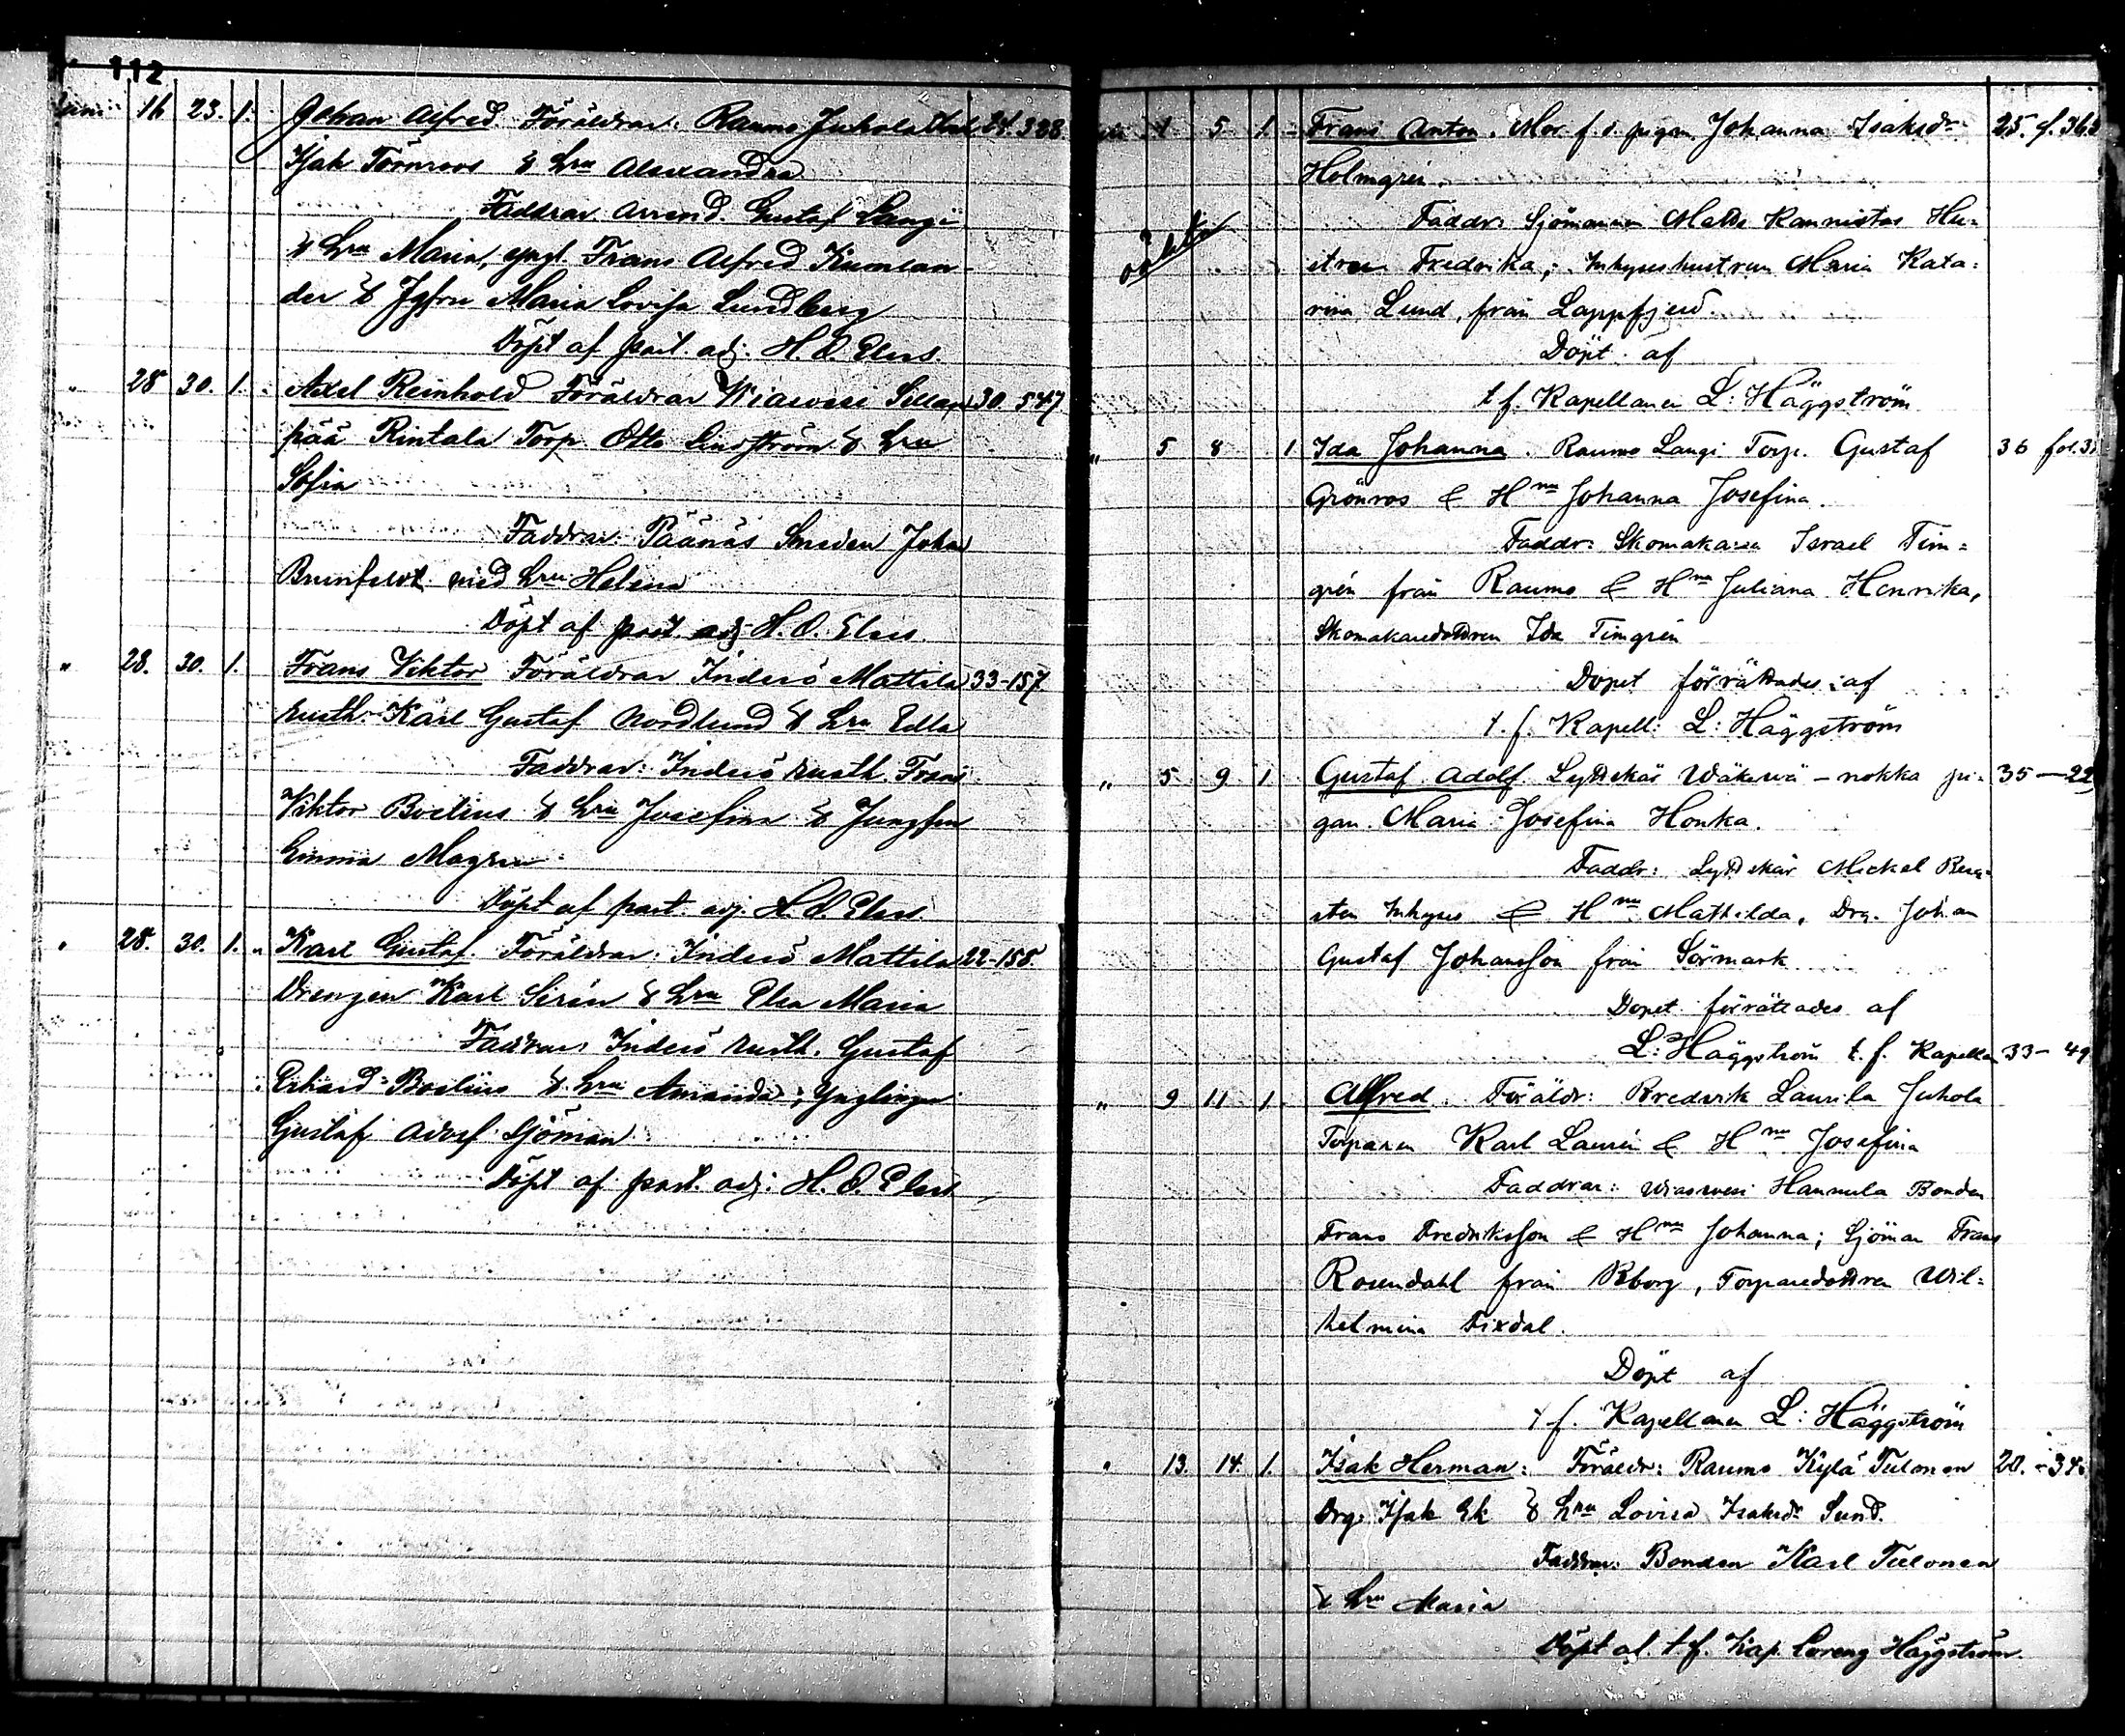 112
Juni 16 23. 1. Johan Alfred. Föräldrar: Raumo Juhola 24. 388.
Isak Törnroos & hru Alexandra
Faddrar Arrend. Gustaf Langi
& hru Maria, yngl. Frans Alfred Kumlan-
der & Jgfru Maria Lovisa Lundberg
Döpt af past. adj. H. O. Elers.
" 28 30. 1. Axel Reinhold Föräldrar Wiasvesi Sillan 30. 547
pää Rintala Torp. Otto Lindström & hru
Sofia
Faddrar: Päänäs Smeden Johan
Brunfeldt med hru Helena
Döpt af past. adj. H. O. Elers.
" 28. 30. 1. Frans Viktor Föräldrar Inderö Mattila 33-157
rusth. Karl Gustaf Nordlund & hru Edla
Faddrar: Inderö rusth. Frans
Viktor Boelius & hru Josefina & Jungfru
Emma Magren
Döpt af past. adj. H. O. Elers.
" 28. 30. 1. " Karl Gustaf. Föräldrar: Inderö Mattila 22-158.
Drengen Karl Serén & hru Elsa Maria
Faddrar: Inderö rusth. Gustaf
Erhard Boelius & hru Amanda; Ynglingen
Gustaf Adolf Sjöman
Döpt af past. adj. H. O. Elers
1 5 1. Frans Anton. Mor f. d. pigan Johanna Isaksdr 25. f. 363
Holmgrén.
oäkta
Faddr: Sjömannen Matts Kannistos Hu-
strun Fredrika; Inhyseshustrun Maria Kata-
rina Lund, från Lappfjerd.
Döpt af
t. f. Kapellanen L: Häggström
" 5 8 1 Ida Johanna. Raumo Langi Torp. Gustaf 36 fol. 3
Grönroos & Hru Johanna Josefina.
Faddr: Skomakaren Israel Tim-
grén från Raumo & Hru Juliana Henrika,
Skomakaredottren Ida Timgrén
Dopet förrättades af
t. f. Kapell: L: Häggström
" 5 9 1 Gustaf Adolf Lyttskär Wäkevä-nokka pi- 35-22
gan Maria Josefina Honka.
Faddr: Lyttskär Mickel Berg-
sten Inhyses & Hru Mathilda, Drg. Johan
Gustaf Johansson från Sörmark
Dopet förrättades af
L: Häggström t. f. Kapellan 33-49
" 9 11 1. Alfred. Föräldr: Bredvik Laurila Juhola
Torparen Karl Laurén & Hru Josefina
Faddrar: Wiasvesi Hannula Bonden
Frans Fredriksson & Hru Johanna; Sjöman Frans
Rosendahl från Bborg, Torparedottren Wil-
helmina Fixdal.
Döpt af
t. f. Kapellanen L: Häggström
" 13. 14. 1. Isak Herman: Föräldr: Raumo Kylä Tulonen 20.-34
Drg. Isak Ek & hru Lovisa Isaksdr Sund.
Faddrar: Bonden Karl Tulonen
& hru Maria
Döpt af t. f. Kap. Lorenz Häggström.